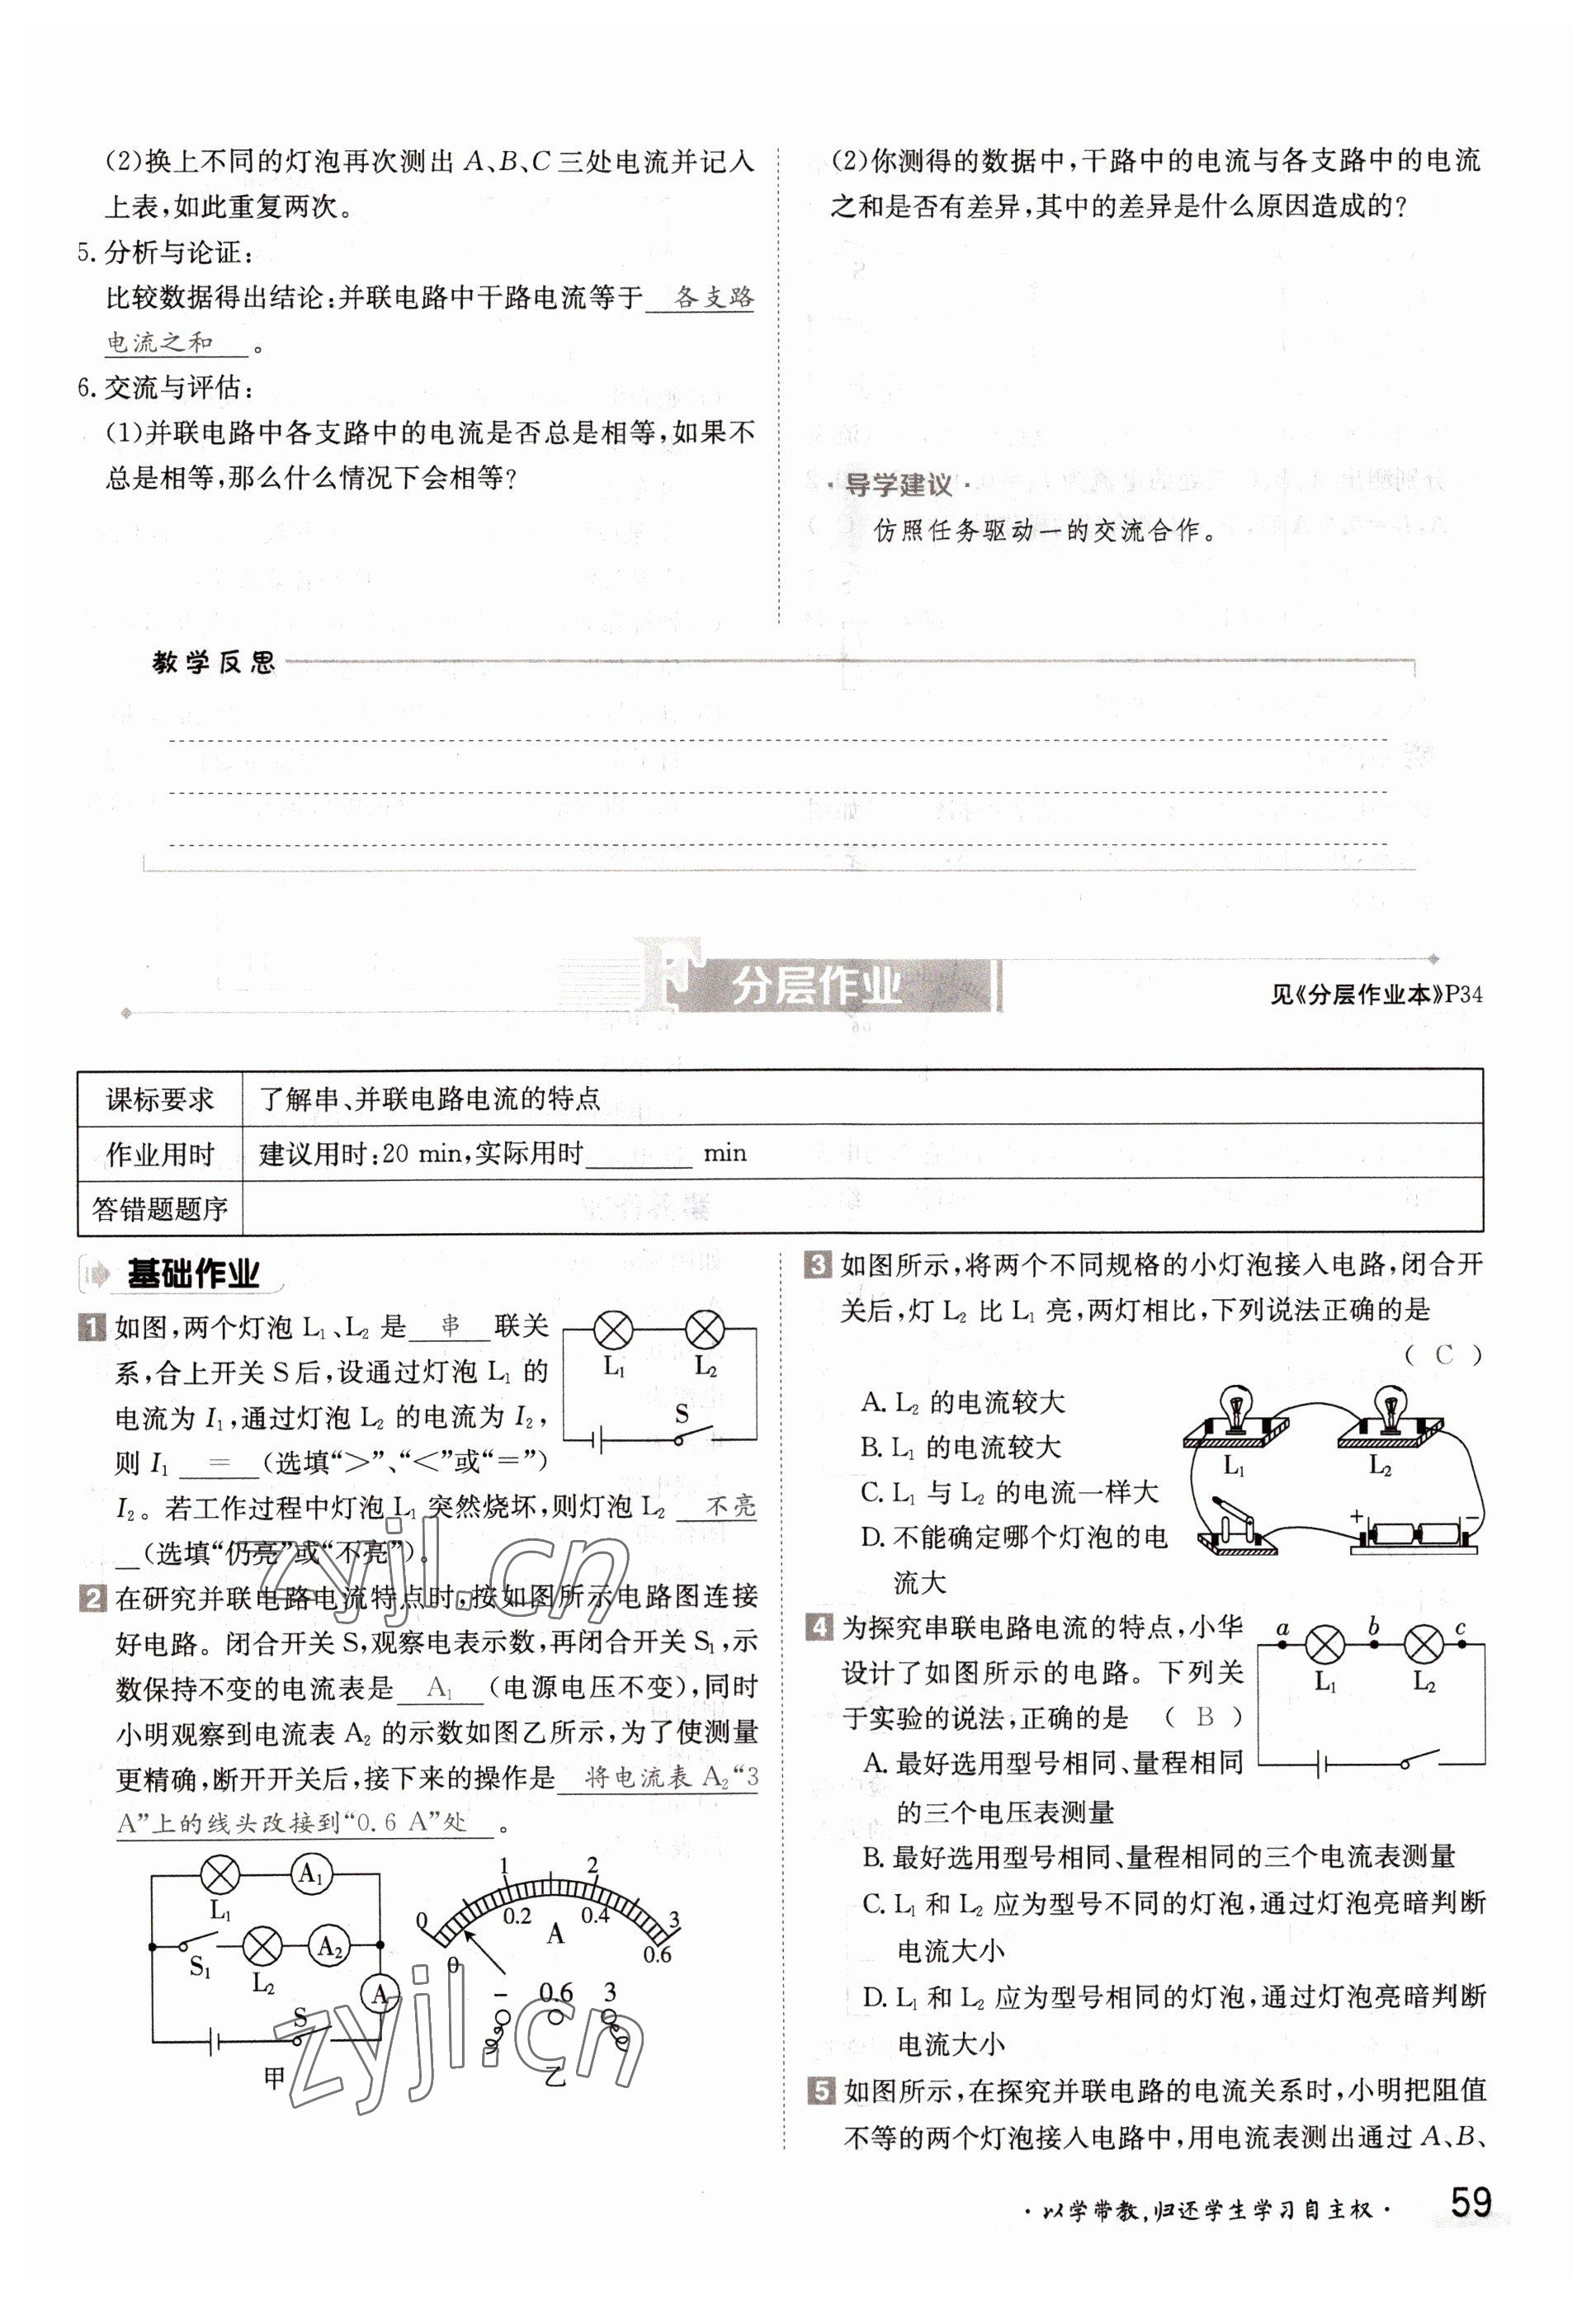 (2)换上不同的灯泡再次测出 A、B、C 三处电流并记入
上表,如此重复两次。
5. 分析与论证:
比较数据得出结论:并联电路中干路电流等于 各支路
电流之和 。
6. 交流与评估:
(1)并联电路中各支路中的电流是否总是相等,如果不
总是相等,那么什么情况下会相等?
(2)你测得的数据中,干路中的电流与各支路中的电流
之和是否有差异,其中的差异是什么原因造成的?
·导学建议·
仿照任务驱动一的交流合作。
教学反思
F 分层作业
见《分层作业本》P34
课标要求 了解串、并联电路电流的特点
作业用时 建议用时:20 min,实际用时________ min
答错题题序
基础作业
1 如图,两个灯泡 L₁、L₂ 是 串 联关
系,合上开关 S 后,设通过灯泡 L₁ 的
电流为 I₁,通过灯泡 L₂ 的电流为 I₂,
则 I₁ = (选填“>”、“<”或“=”)
I₂。若工作过程中灯泡 L₁ 突然烧坏,则灯泡 L₂ 不亮
(选填“仍亮”或“不亮”)。
L₁ L₂
S
2 在研究并联电路电流特点时,按如图所示电路图连接
好电路。闭合开关 S,观察电表示数,再闭合开关 S₁,示
数保持不变的电流表是 A₁ (电源电压不变),同时
小明观察到电流表 A₂ 的示数如图乙所示,为了使测量
更精确,断开开关后,接下来的操作是 将电流表 A₂“3
A”上的线头改接到“0.6 A”处 。
A₁
L₁
A₂
S₁ L₂
A
S
甲
0 1 2 3
0 0.2 0.4 0.6
A
− 0.6 3
乙
3 如图所示,将两个不同规格的小灯泡接入电路,闭合开
关后,灯 L₂ 比 L₁ 亮,两灯相比,下列说法正确的是
( C )
A. L₂ 的电流较大
B. L₁ 的电流较大
C. L₁ 与 L₂ 的电流一样大
D. 不能确定哪个灯泡的电
流大
L₁ L₂
+ −
4 为探究串联电路电流的特点,小华
设计了如图所示的电路。下列关
于实验的说法,正确的是 ( B )
a b c
L₁ L₂
A. 最好选用型号相同、量程相同
的三个电压表测量
B. 最好选用型号相同、量程相同的三个电流表测量
C. L₁ 和 L₂ 应为型号不同的灯泡,通过灯泡亮暗判断
电流大小
D. L₁ 和 L₂ 应为型号相同的灯泡,通过灯泡亮暗判断
电流大小
5 如图所示,在探究并联电路的电流关系时,小明把阻值
不等的两个灯泡接入电路中,用电流表测出通过 A、B、
zyjl.cn
zyjl.cn
·以学带教,归还学生学习自主权· 59